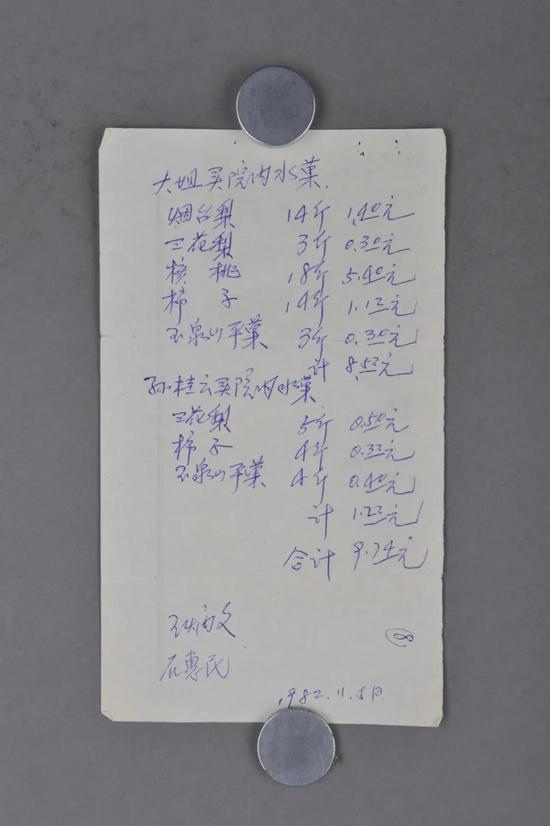 大姐买院内水菓.
烟台梨 14斤 1.40元
三花梨 3斤 0.30元
核桃 18斤 5.40元
柿子 14斤 1.12元
玉泉山平菓 3斤 0.30元
计 8.52元
孙桂云买院内水菓
三花梨 5斤 0.50元
柿子 4斤 0.32元
玉泉山平菓 4斤 0.40元
计 1.22元
合计 9.74元
文
石惠民
1982.11.5日